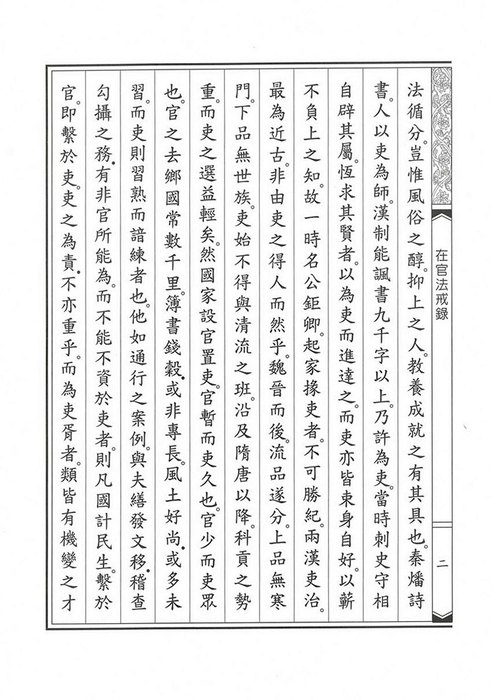 在官法戒錄
二
法循分。豈惟風俗之醇。抑上之人。教養成就之有其具也。秦燔詩
書。人以吏為師。漢制能諷書九千字以上。乃許為吏。當時刺史守相
自辟其屬。恆求其賢者。以為吏而進達之。而吏亦皆束身自好。以蘄
不負上之知。故一時名公鉅卿。起家掾吏者。不可勝紀。兩漢吏治。
最為近古。非由吏之得人而然乎。魏晉而後。流品遂分。上品無寒
門。下品無世族。吏始不得與清流之班。沿及隋唐以降。科貢之勢
重。而吏之選益輕矣。然國家設官置吏。官暫而吏久也。官少而吏眾
也。官之去鄉國常數千里。簿書錢穀。或非專長。風土好尚。或多未
習。而吏則習熟而諳練者也。他如通行之案例。與夫繕發文移。稽查
勾攝之務。有非官所能為。而不能不資於吏者。則凡國計民生。繫於
官。即繫於吏。吏之為責。不亦重乎。而為吏胥者。類皆有機變之才